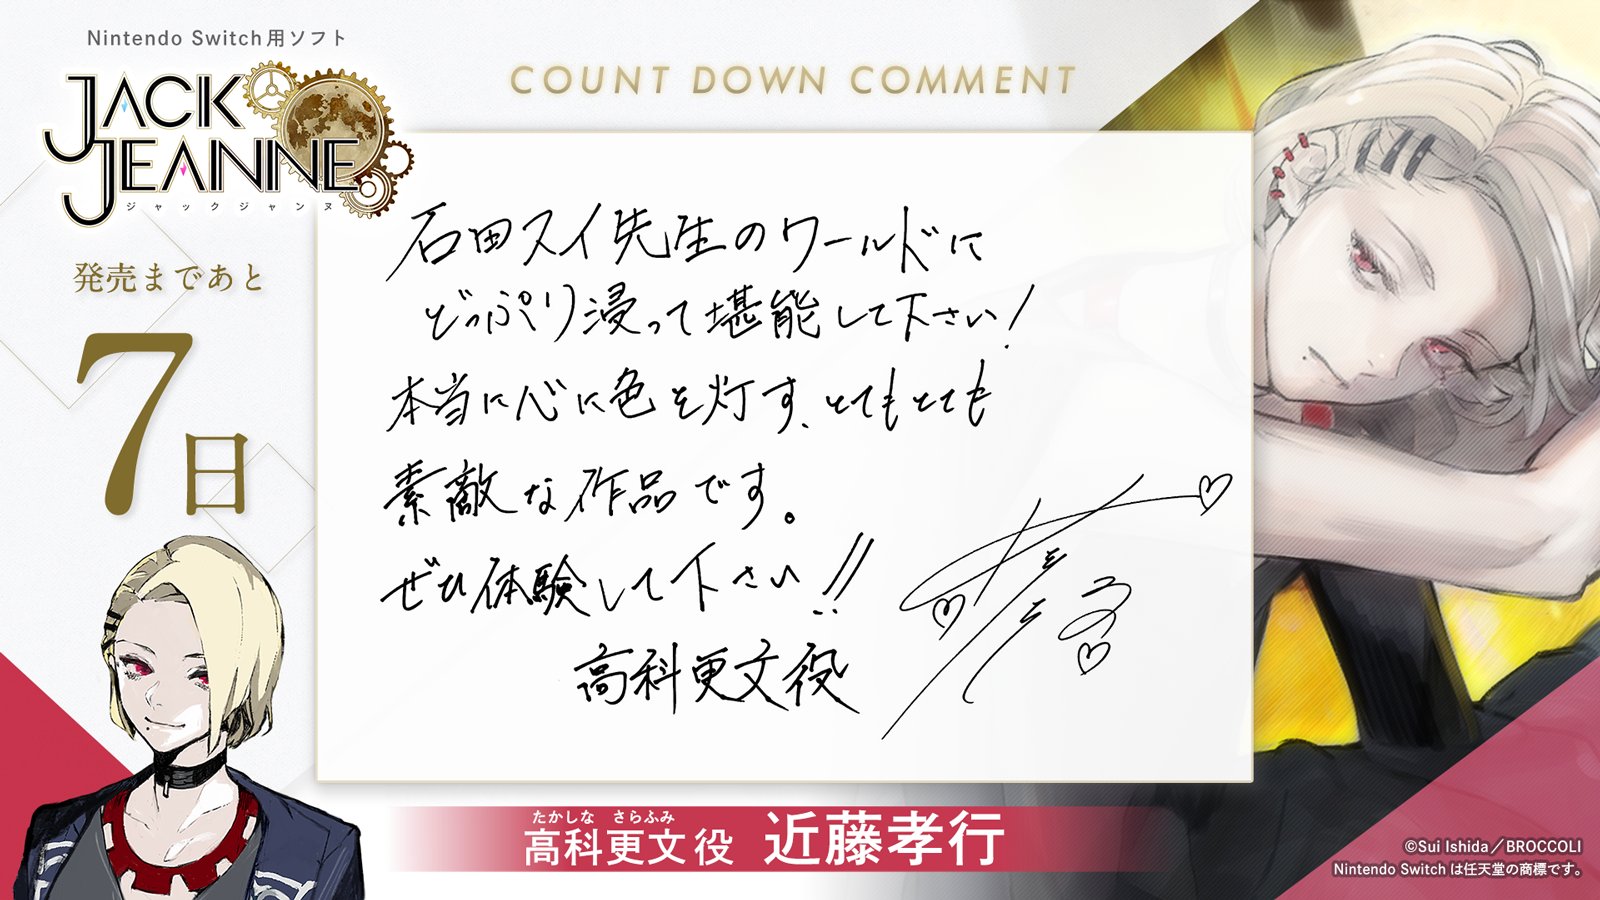 Nintendo Switch用ソフト
JACK
JEANNE
ジャックジャンヌ
発売まであと
7日
COUNT DOWN COMMENT
石田スイ先生のワールドに
どっぷり浸って堪能して下さい!
本当に心に色を灯す、とてもとても
素敵な作品です。
ぜひ体験して下さい!!
高科更文役
たかしな さらふみ
高科更文役 近藤孝行
©Sui Ishida/BROCCOLI
Nintendo Switch は任天堂の商標です。